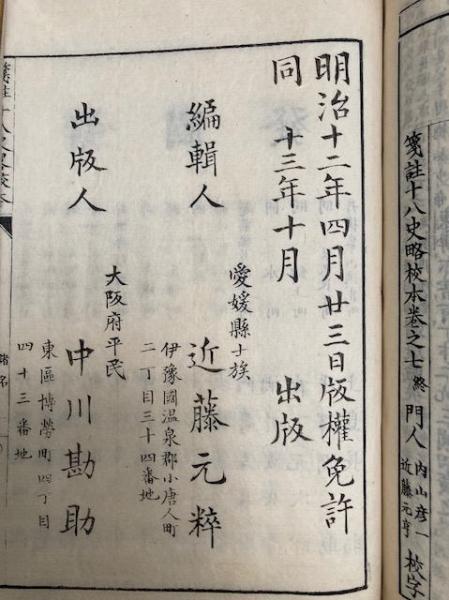 箋註十八史略校本卷之七終 門人 內山彦一 近藤元亨 校字
明治十二年四月廿三日版權免許
同 十三年十月 出版
編輯人 愛媛縣士族 近藤元粹
伊豫國温泉郡小唐人町
二丁目三十四番地
出版人 大阪府平民 中川勘助
東區博勞町四丁目
四十三番地